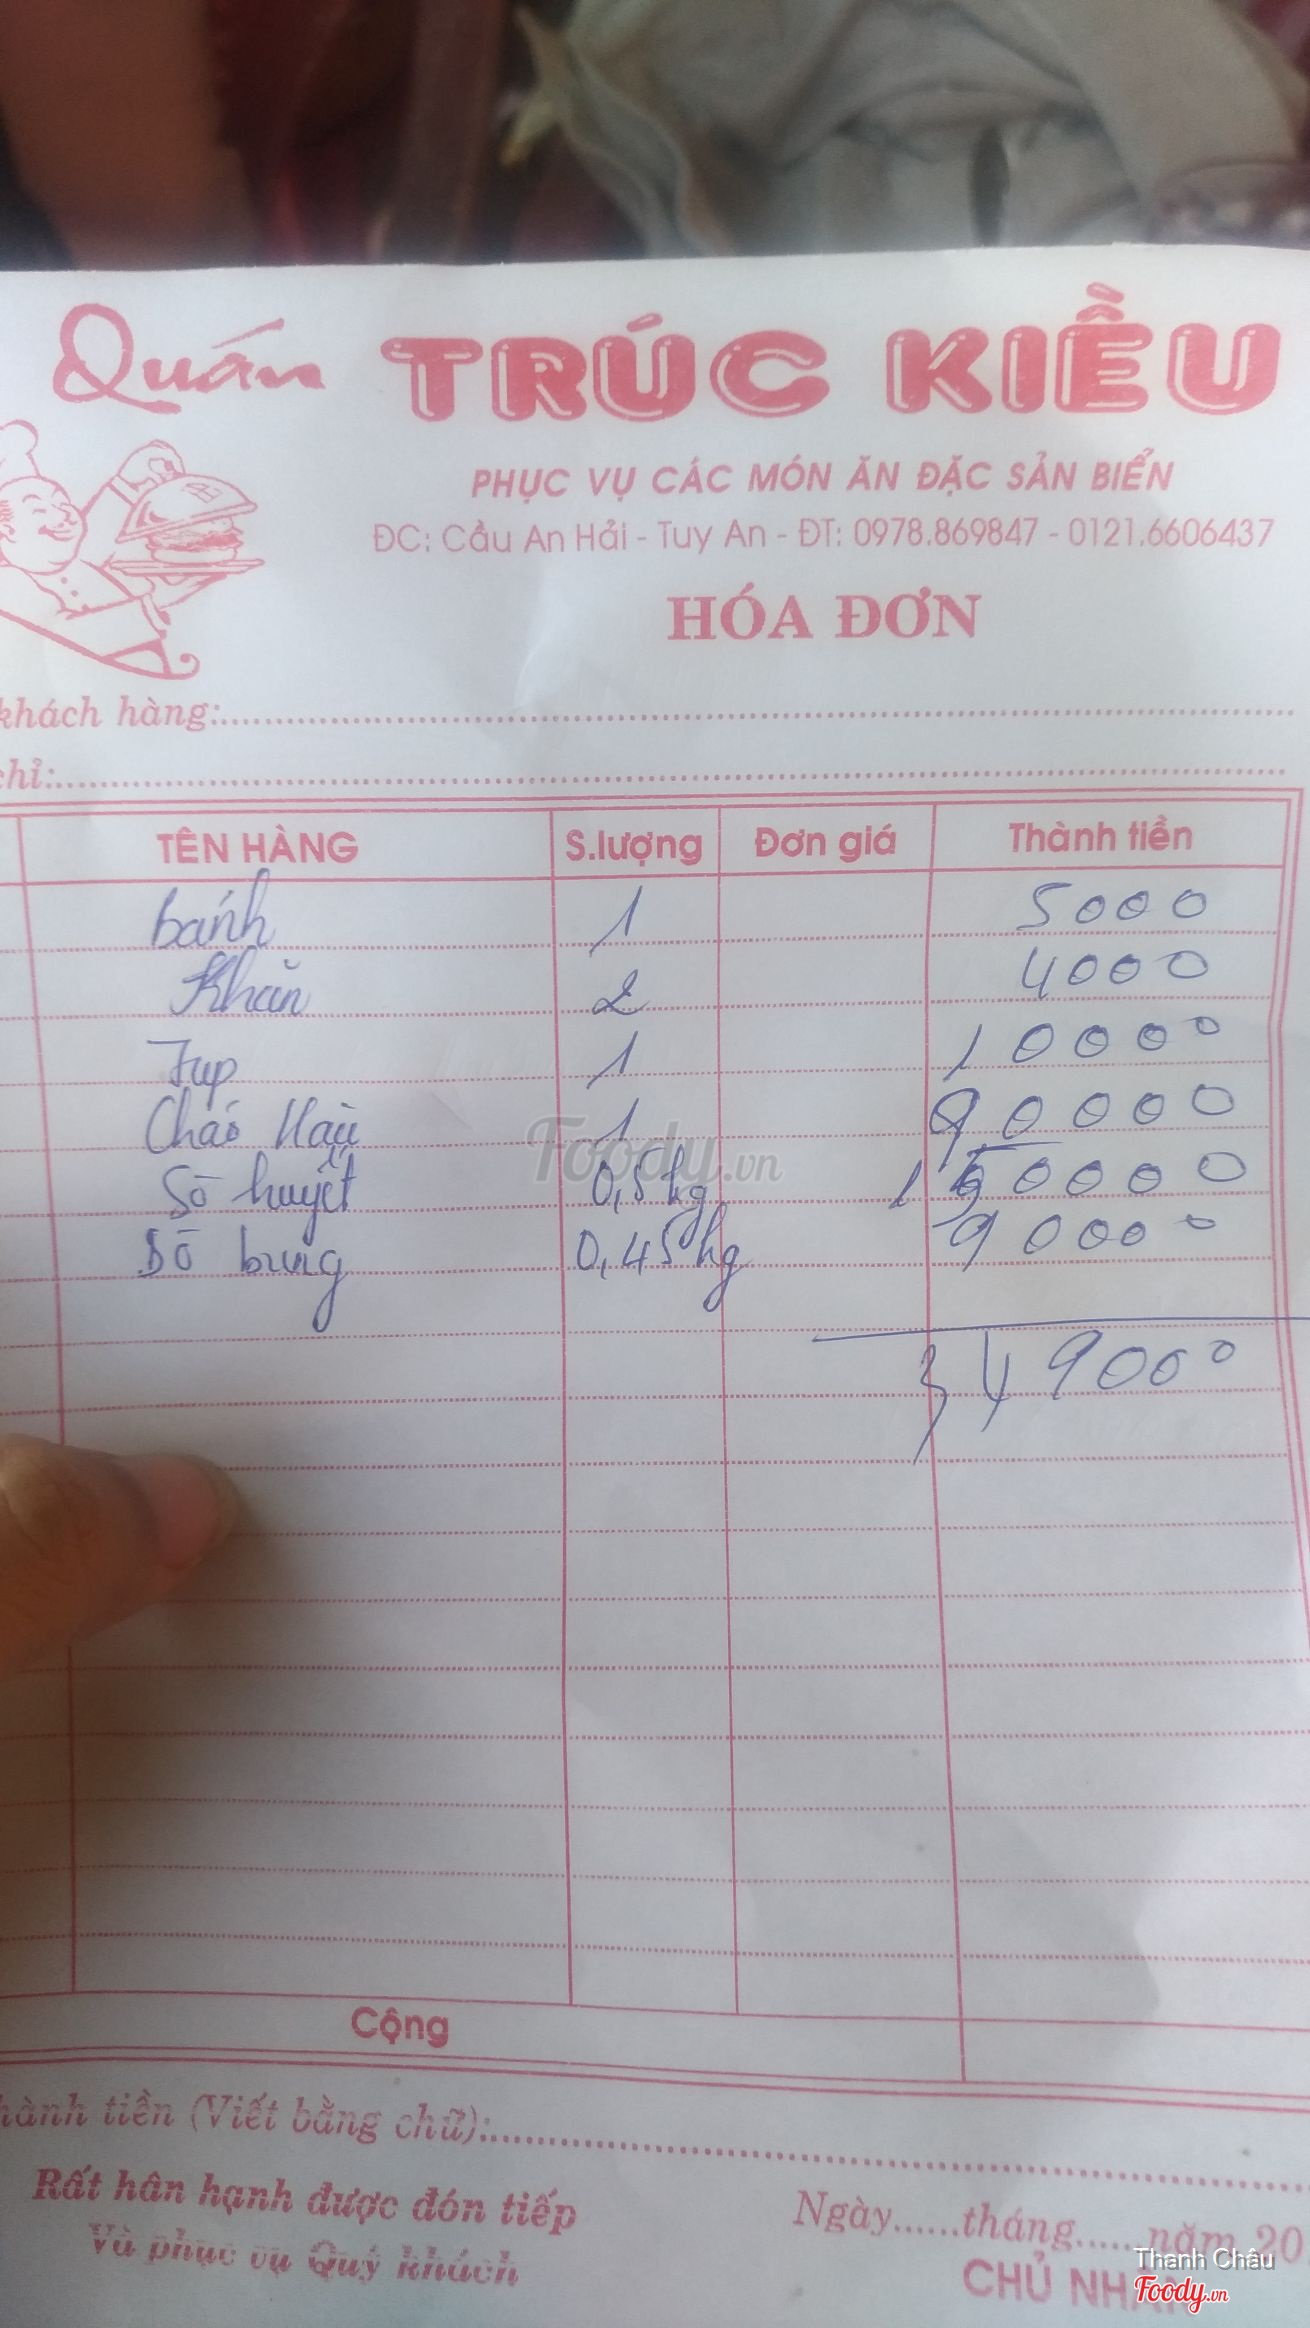 Quán TRÚC KIỀU
PHỤC VỤ CÁC MÓN ĂN ĐẶC SẢN BIỂN
ĐC: Cầu An Hải - Tuy An - ĐT: 0978.869847 - 0121.6606437
HÓA ĐƠN
khách hàng:
chỉ:
TÊN HÀNG S.lượng Đơn giá Thành tiền
bánh 1 5000
Khăn 2 4000
Jup 1 10000
Cháo Hàu 1 90000
Sò huyết 0,5 kg 150000
Sò bung 0,45 kg 90000
349000
Foody.vn
Cộng
hành tiền (Viết bằng chữ):
Rất hân hạnh được đón tiếp
Và phục vụ Quý khách
Ngày......tháng......năm 20
CHỦ NHÂ
Thanh Châu
Foody.vn